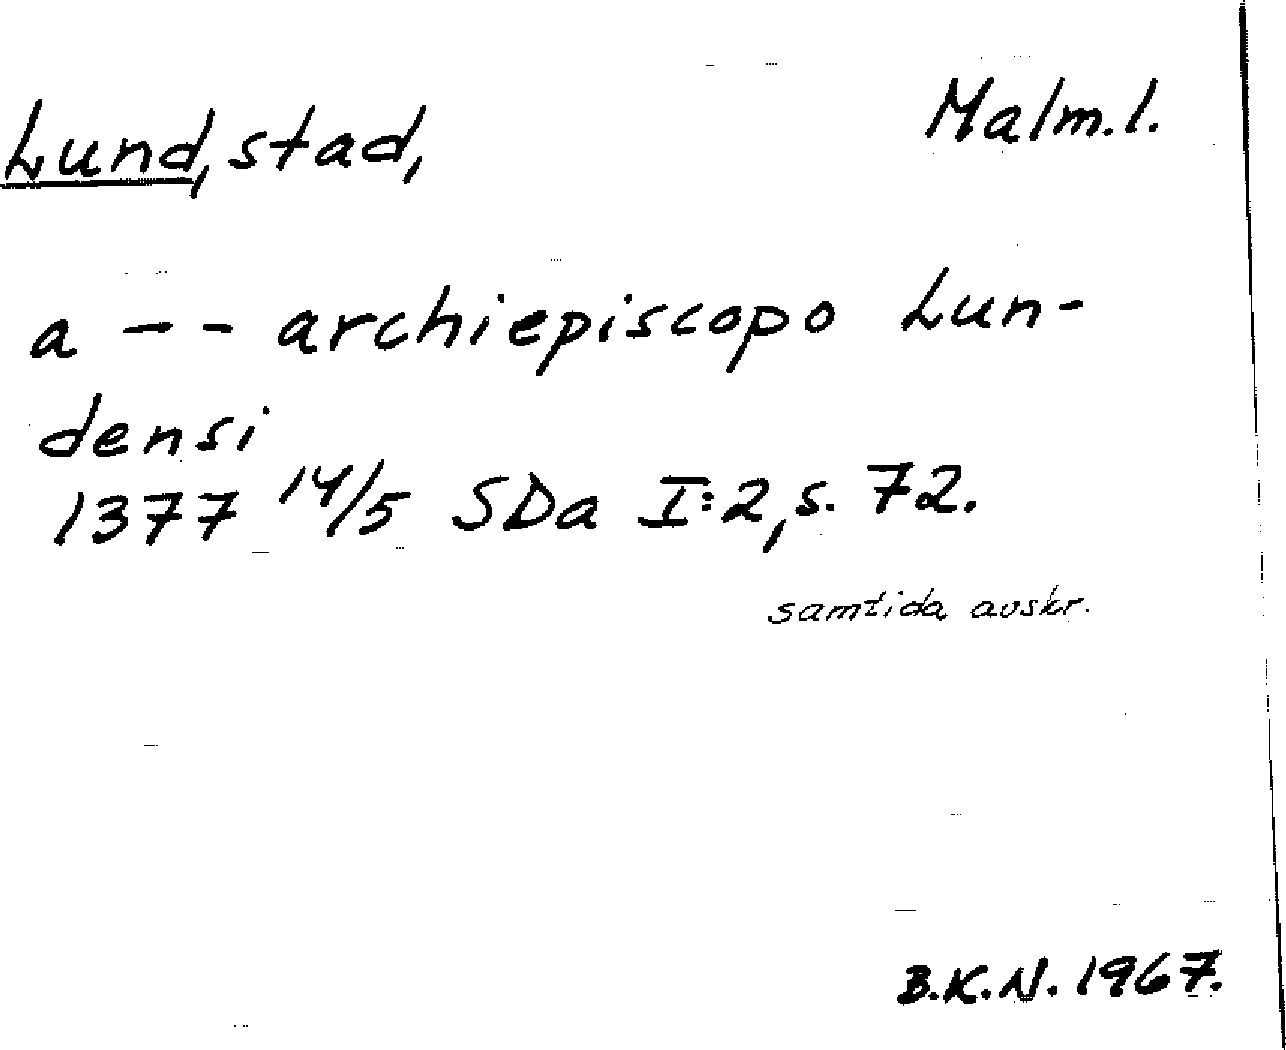 Lund, stad,
Malm.l.
a -- archiepiscopo Lun-
densi
1377 14/5 SDa I:2, s. 72.
samtida avskr.
B.K.N. 1967.